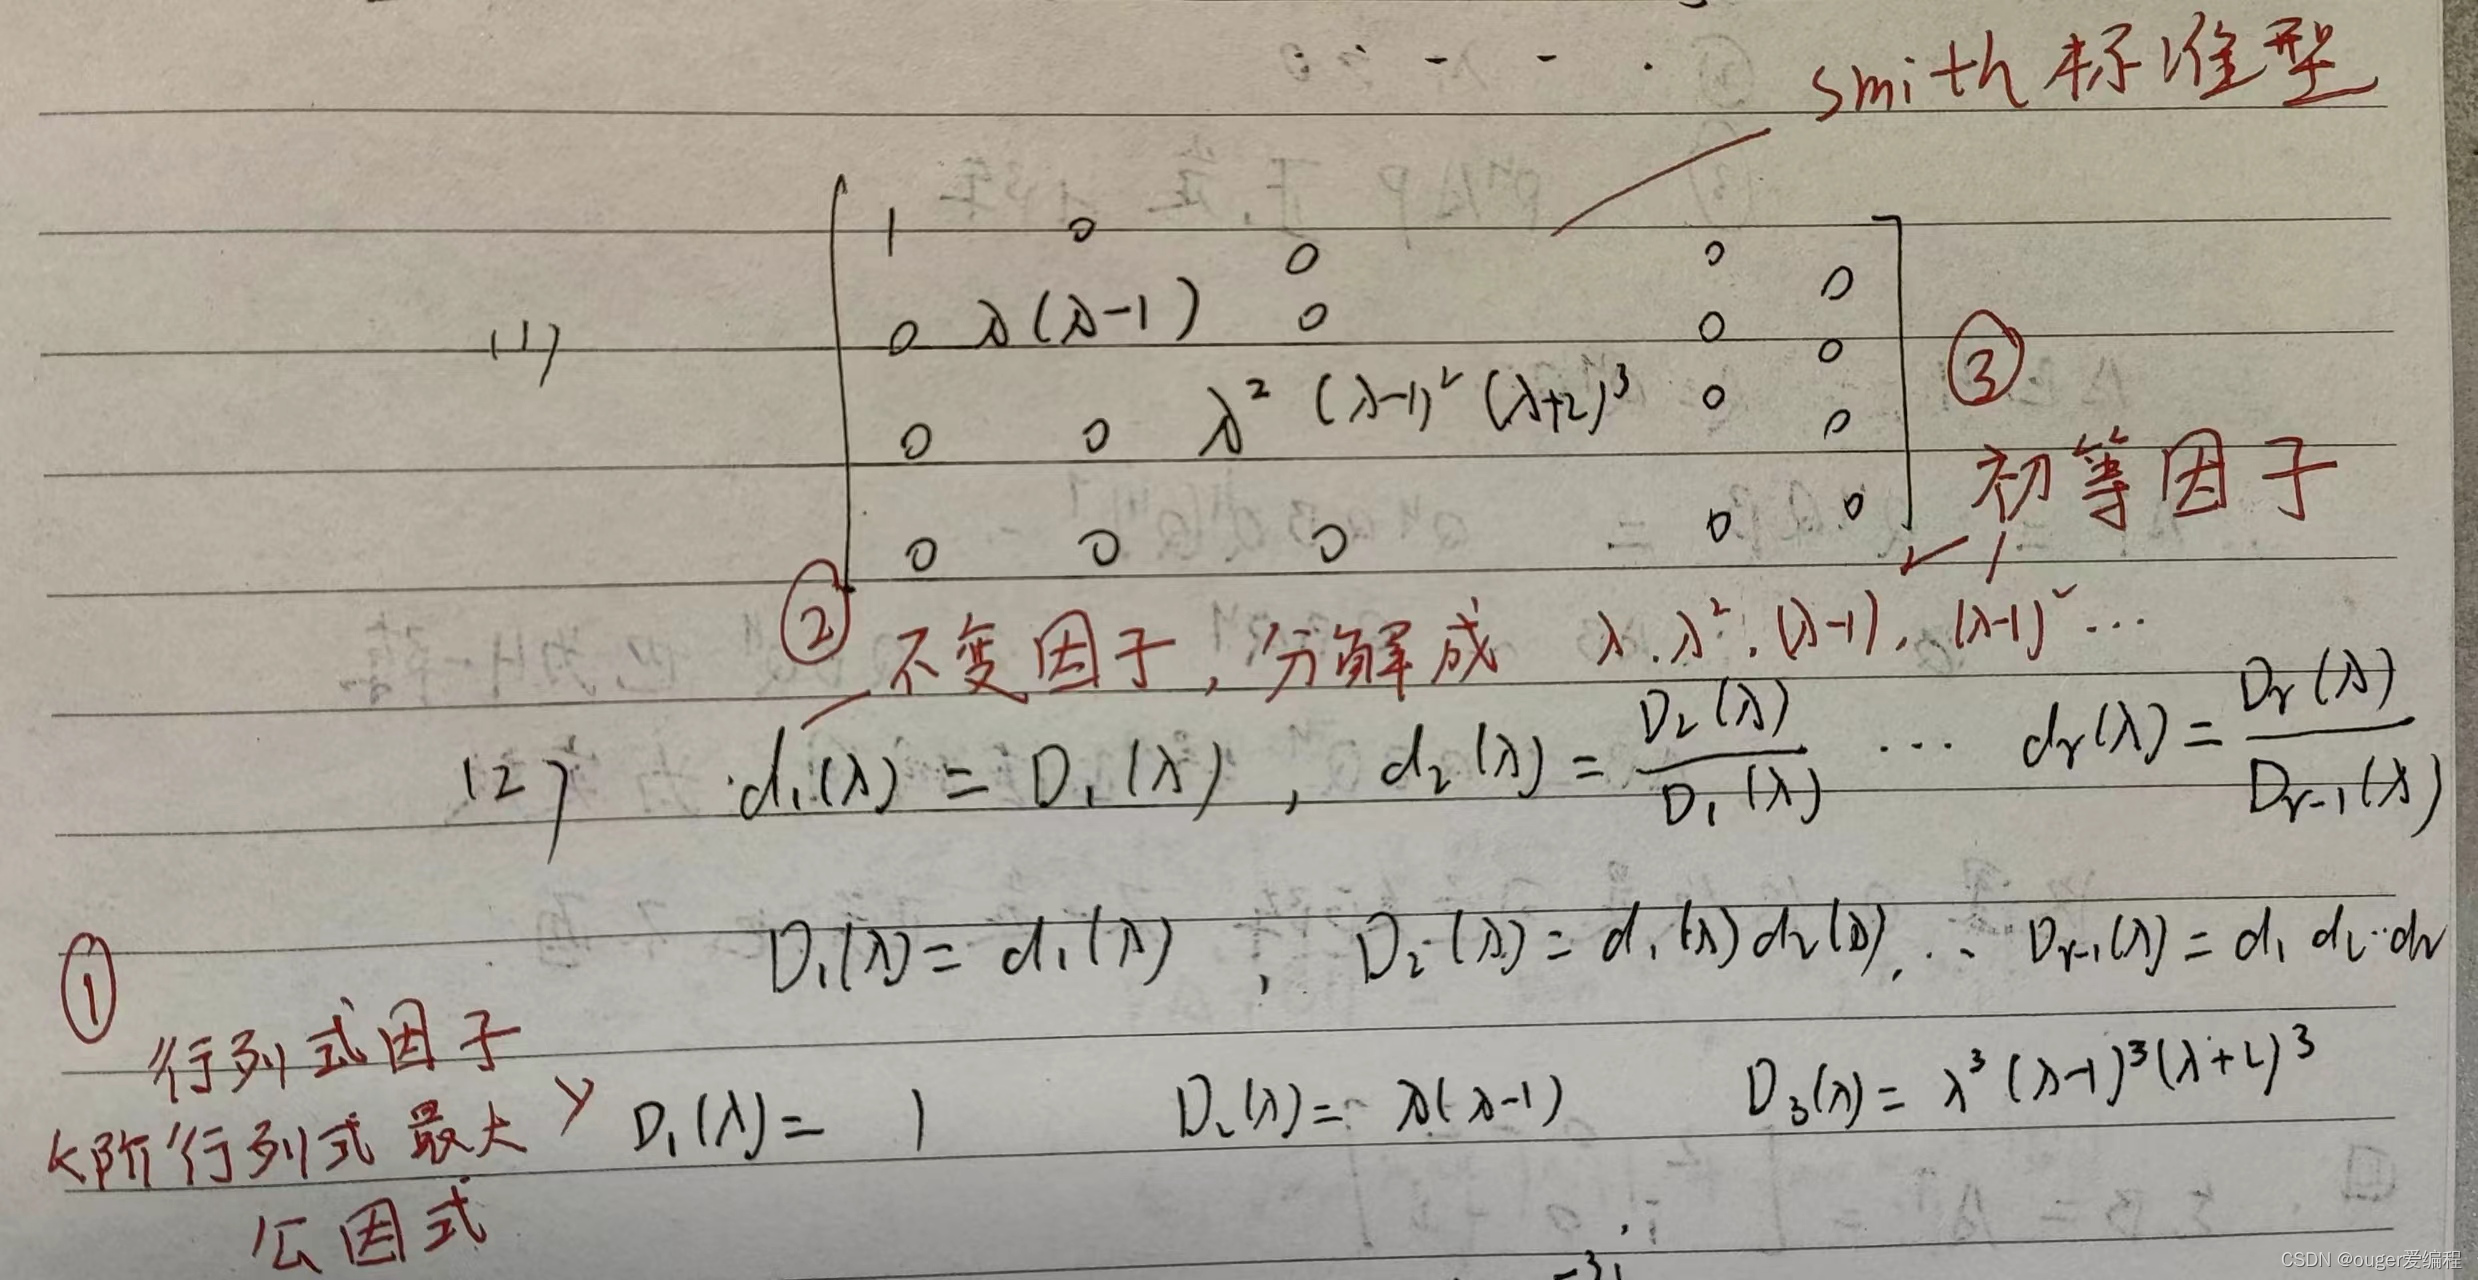 smith 标准型
(1)
1 0 0 0 0
0 λ(λ-1) 0 0 0
0 0 λ² (λ-1)² (λ+2)³ 0 0
0 0 0 0 0
③
初等因子
② 不变因子，分解成 λ, λ², (λ-1), (λ-1)² ...
(2) d₁(λ) = D₁(λ) , d₂(λ) = D₂(λ)/D₁(λ) ... dr(λ) = Dr(λ)/Dr-1(λ)
D₁(λ) = d₁(λ) , D₂(λ) = d₁(λ)d₂(λ), ... Dr-1(λ) = d₁ d₂ ·· dr
①
行列式因子
K阶行列式最大
公因式
D₁(λ) = 1 D₂(λ) = λ(λ-1) D₃(λ) = λ³(λ-1)³(λ+2)³
CSDN @ouger爱编程